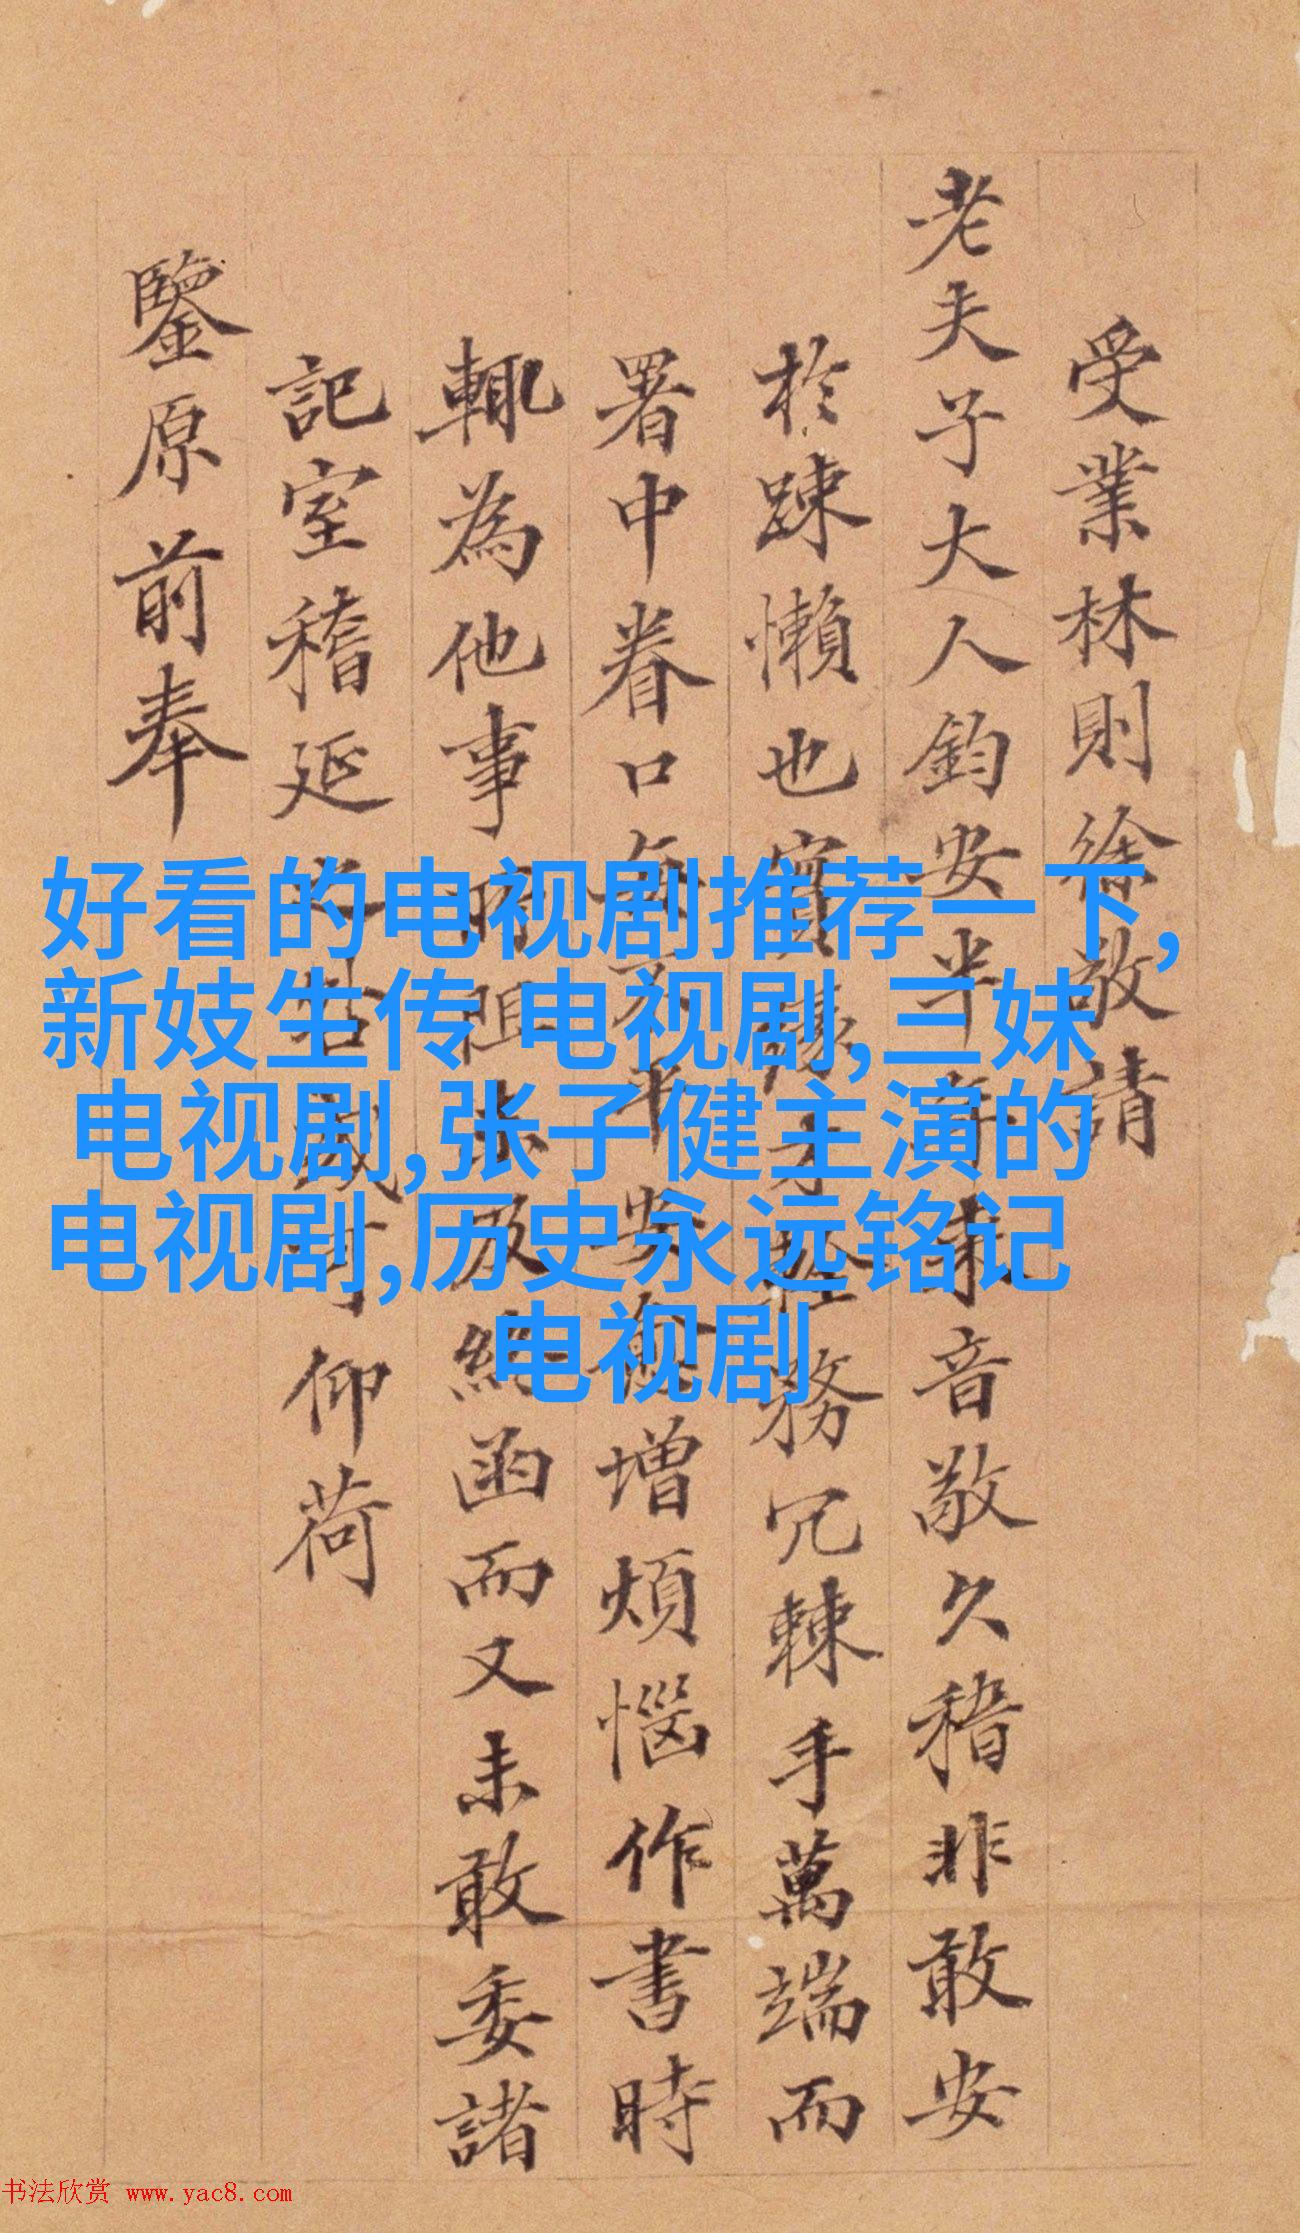 受業林則徐敬請
老夫子大人鈞安半年来音敬久稽非敢安
於踈懶也實緣才務冗棘手萬端而
署中眷口每不平安愈增煩惱作書時
輒為他事所阻未及終函而又未敢委諸
記室稽延之咎或可仰荷
鑒原前奉
好看的电视剧推荐一下,
新妓生传 电视剧,三妹
电视剧,张子健主演的
电视剧,历史永远铭记
电视剧
书法欣赏 www.yac8.com